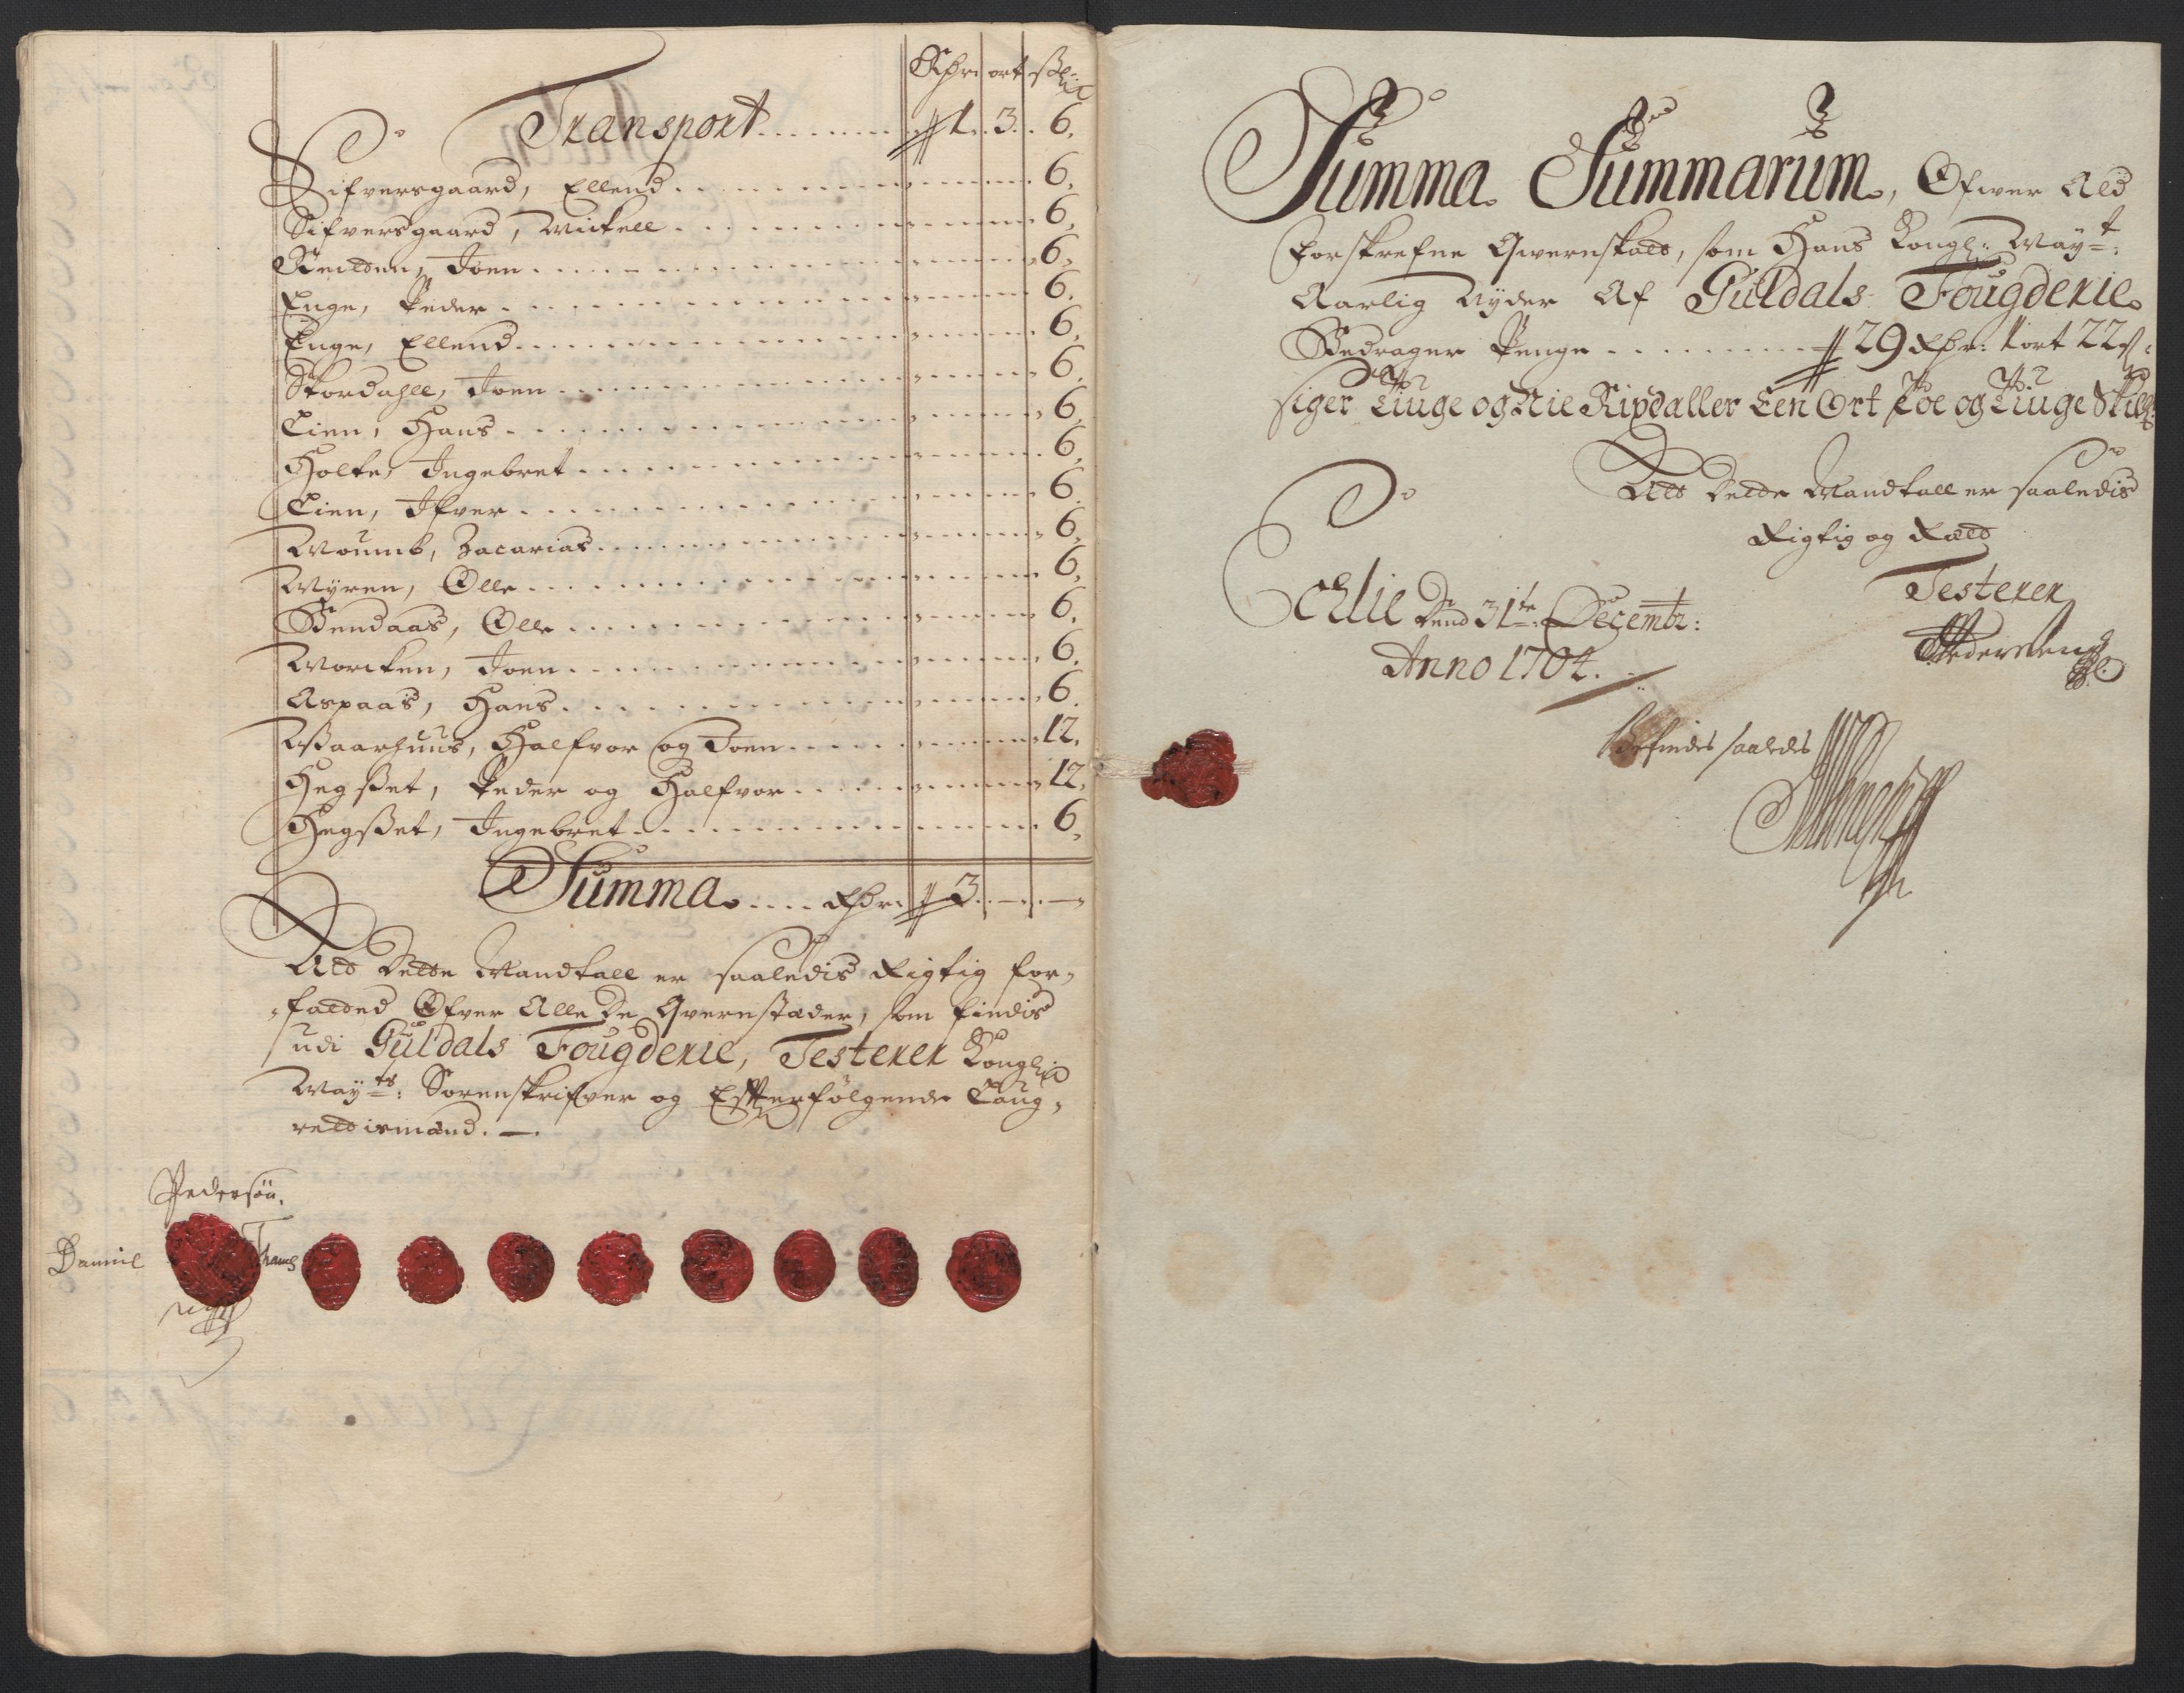 Rdr ort sk
Transport 1. 3. 6.
Sifversgaard, Ellend 6.
Sifversgaard, Mickell 6.
Joen 6.
Enge, Peder 6.
Enge, Ellend 6.
Stordahll, Joen 6.
Lien, Hans 6.
Holte, Ingebret 6.
Lien, Ifver 6.
Moumb, Zacarias 6.
Myren, Olle 6.
Bendaas, Olle 6.
Morcken, Joen 6.
Aspaas, Hans 6.
Aasaarhuus, Halfvor og Joen 12.
Hegset, Peder og Halfvor 12.
Hegset, Ingebret 6.
Summa Rdr 3. — —
At dette Mandtall er saaledis Rigtig for-
fatted Ofver Alle de Qvernstæder, som findis
udi Guldals Fougderie, Testerer Kongl:
Mayts: Sorenskrifver og Effterfølgende Laug-
rettismænd.
Pedersøn.
Daniel
Summa Summarum, Ofwer Ald
forskrefne Qwernskatt, som Hans Kongl: Mayt:
Aarlig Nyder Af Guldals Fougderie
Bedrager Penge 29 Rdr: 1 ort 22 s:
siger Tiuge og Nie Rixdaller Een Ort Toe og Tiuge Skill:
At dette Mandtall er saaledis
Rigtig og Rætt
Testerer
Pedersen
Dend 31te: Decembr:
Anno 1704.
Befindes saaledes